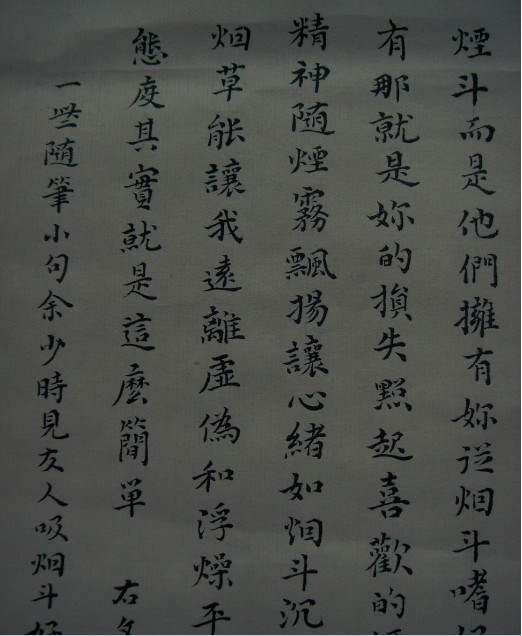 煙斗而是他們擁有妳從烟斗嗜
有那就是妳的損失點起喜歡的
精神随煙霧飄揚讓心緒如烟斗沉
烟草能讓我遠離虛偽和浮燥平
態度其實就是這麼簡單 右
一些随筆小句余少時見友人吸烟斗好